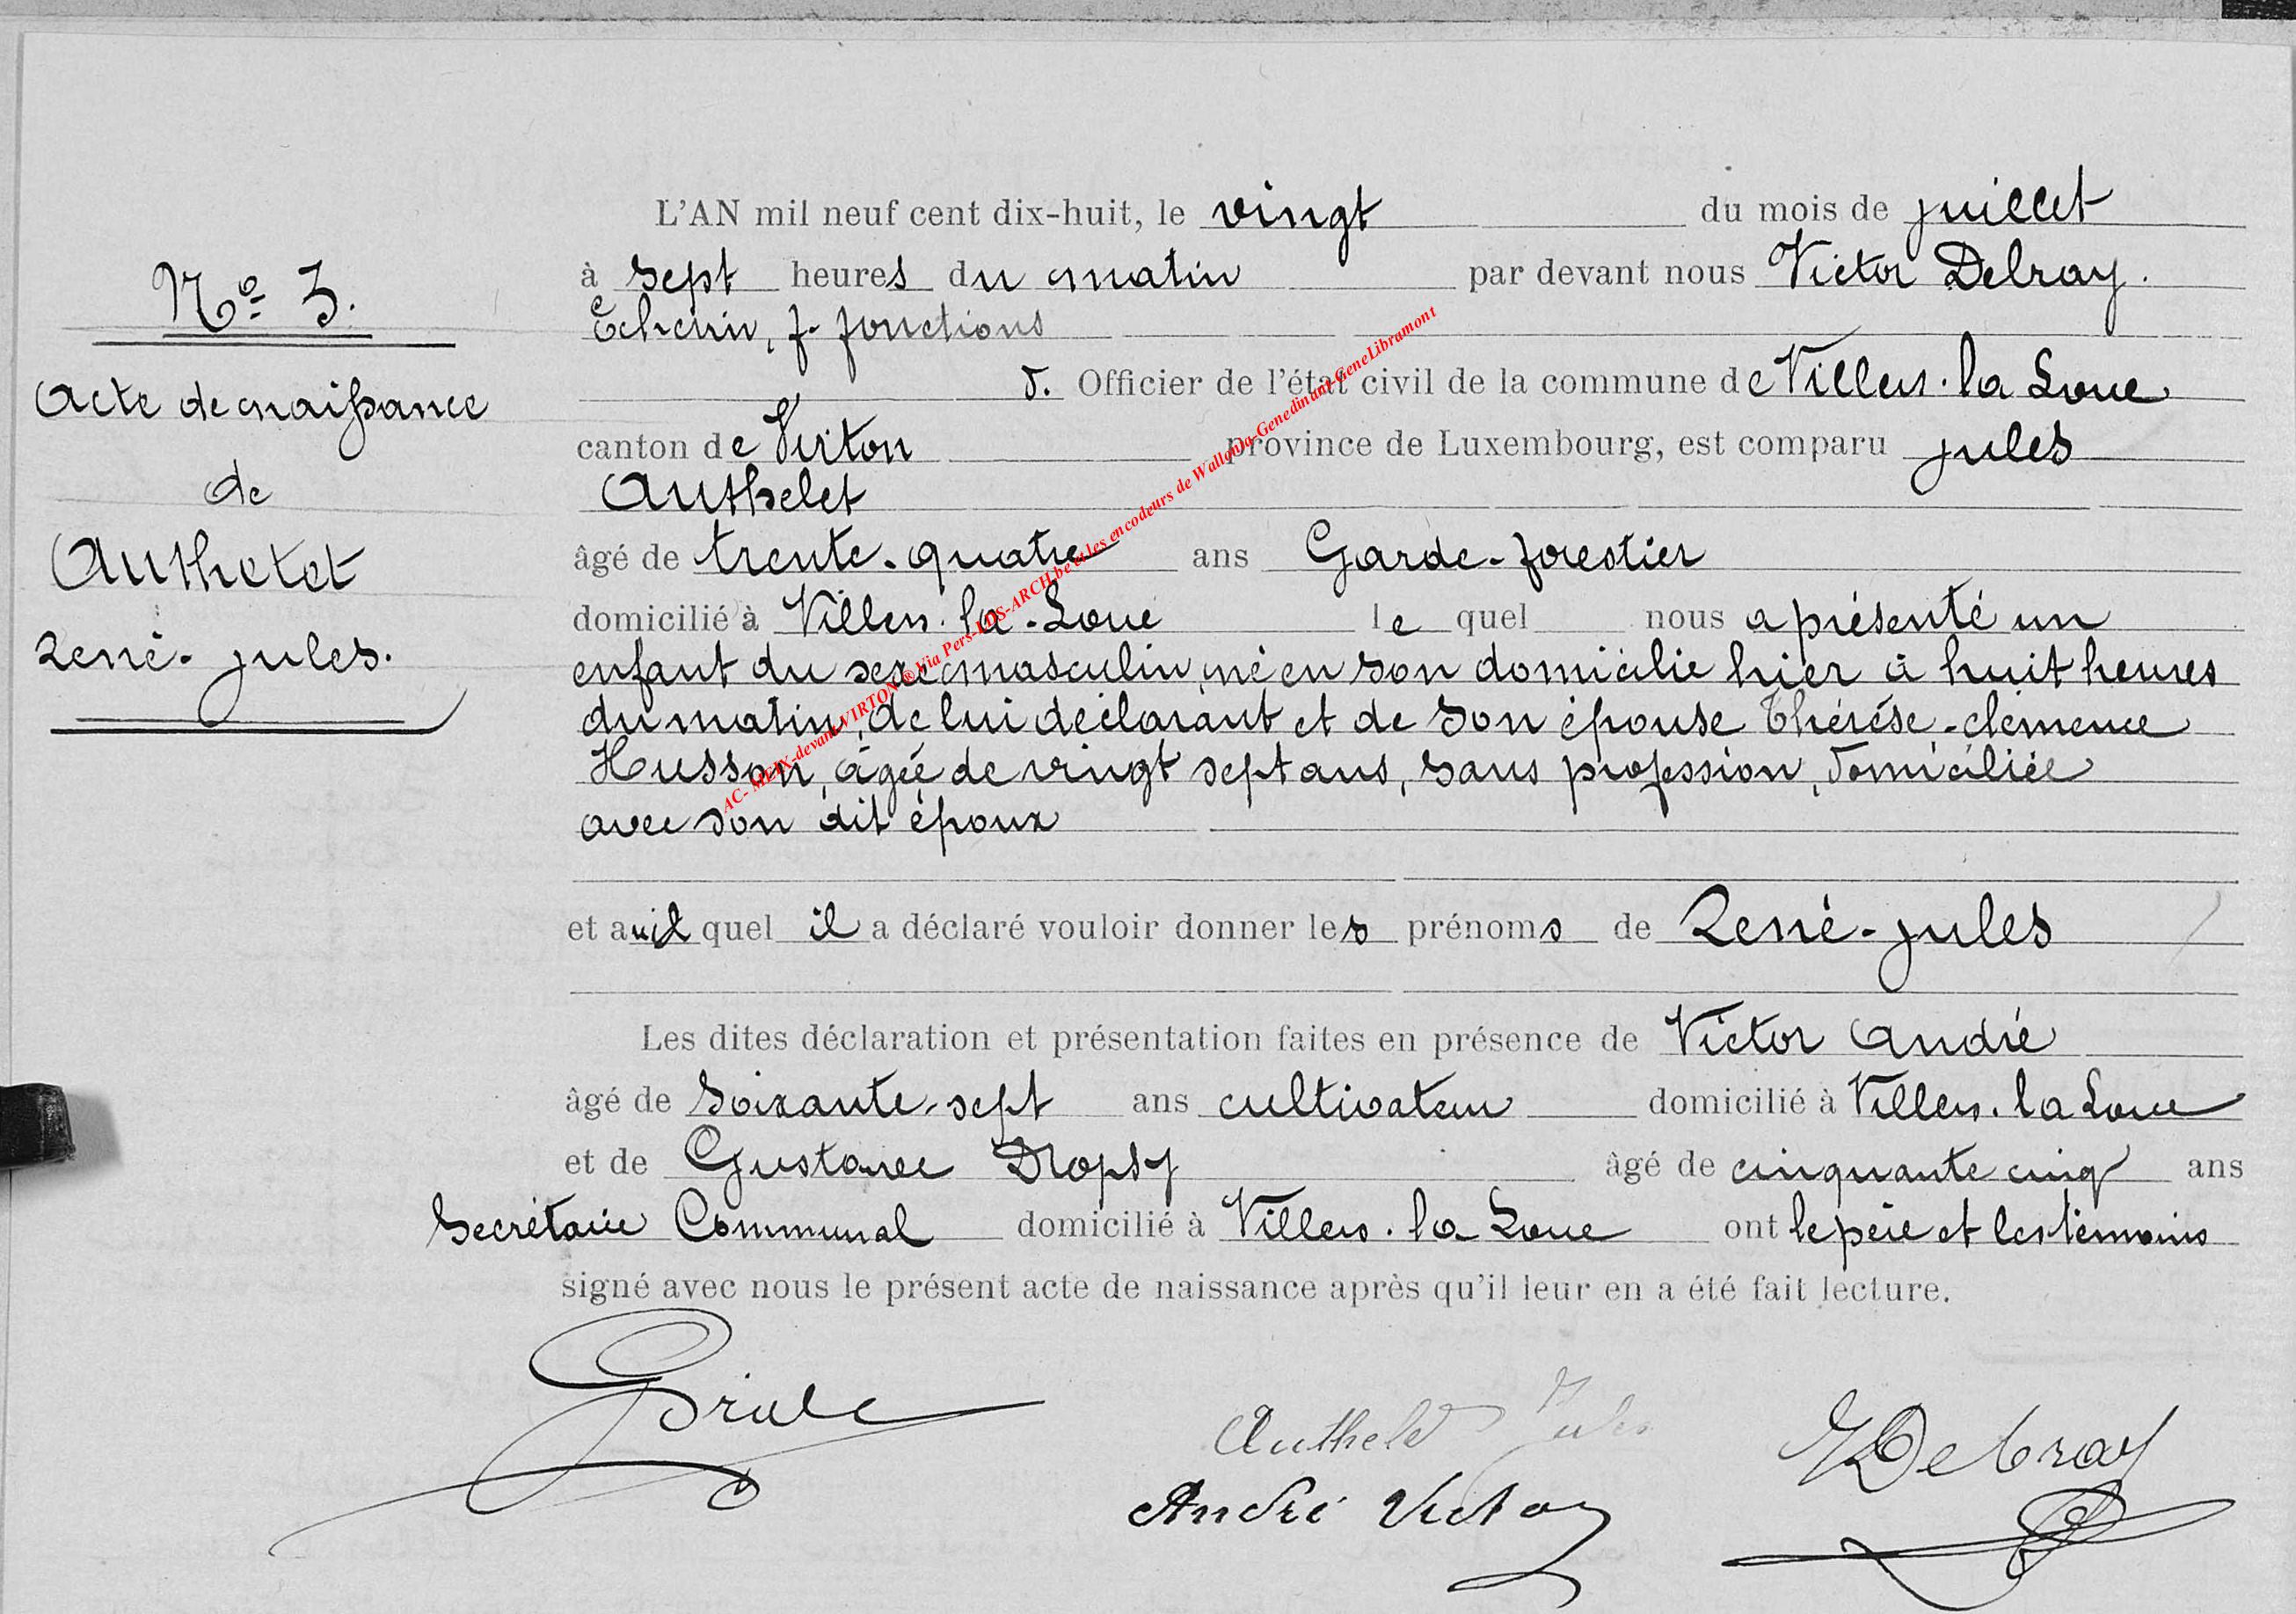 N° 3.
Acte de naissance
de
Authelet
René-Jules.
L'AN mil neuf cent dix-huit, le vingt du mois de juillet
à sept heures du matin par devant nous Victor Delray.
Echevin, f. fonctions
d. Officier de l'état civil de la commune de Villers-la-Loue
canton de Virton province de Luxembourg, est comparu Jules
Authelet
âgé de trente-quatre ans Garde-forestier
domicilié à Villers-la-Loue le quel nous a présenté un
enfant du sexe masculin, né en son domicilie hier à huit heures
du matin, de lui déclarant et de son épouse Thérèse-Clémence
Husson, âgée de vingt sept ans, sans profession, domiciliée
avec son dit époux
et auxquel il a déclaré vouloir donner les prénoms de René-Jules
Les dites déclaration et présentation faites en présence de Victor André
âgé de soixante-sept ans cultivateur domicilié à Villers-la Loue
et de Gustave Dropsy âgé de cinquante cinq ans
Secrétaire Communal domicilié à Villers-la Loue ont le père et les témoins
signé avec nous le présent acte de naissance après qu'il leur en a été fait lecture.
Authelet Jules
André Victor
VDelray
AC- MEIX-devant-VIRTON @ Via Pers-LDS-ARCH.be et les encodeurs de Wallonia-Genedinant-GeneLibramont